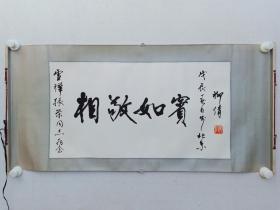 雪祥振荣同志存念
相敬如賓
戊辰
北京
柳倩